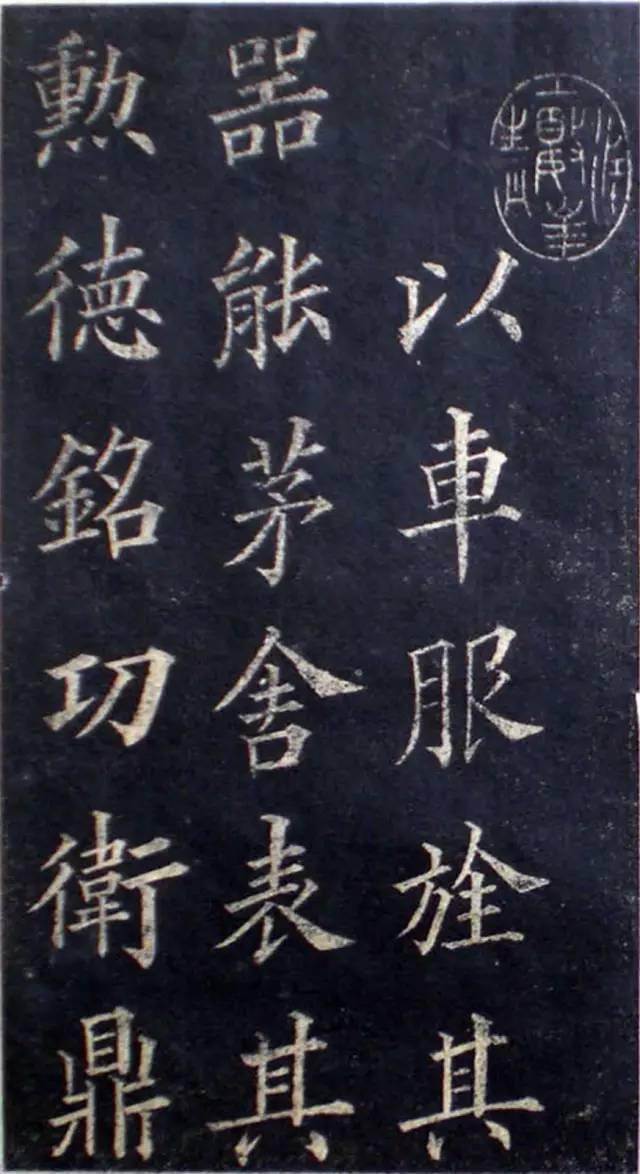 以車服旌其
器能茅舍表其
勲德銘功衛鼎